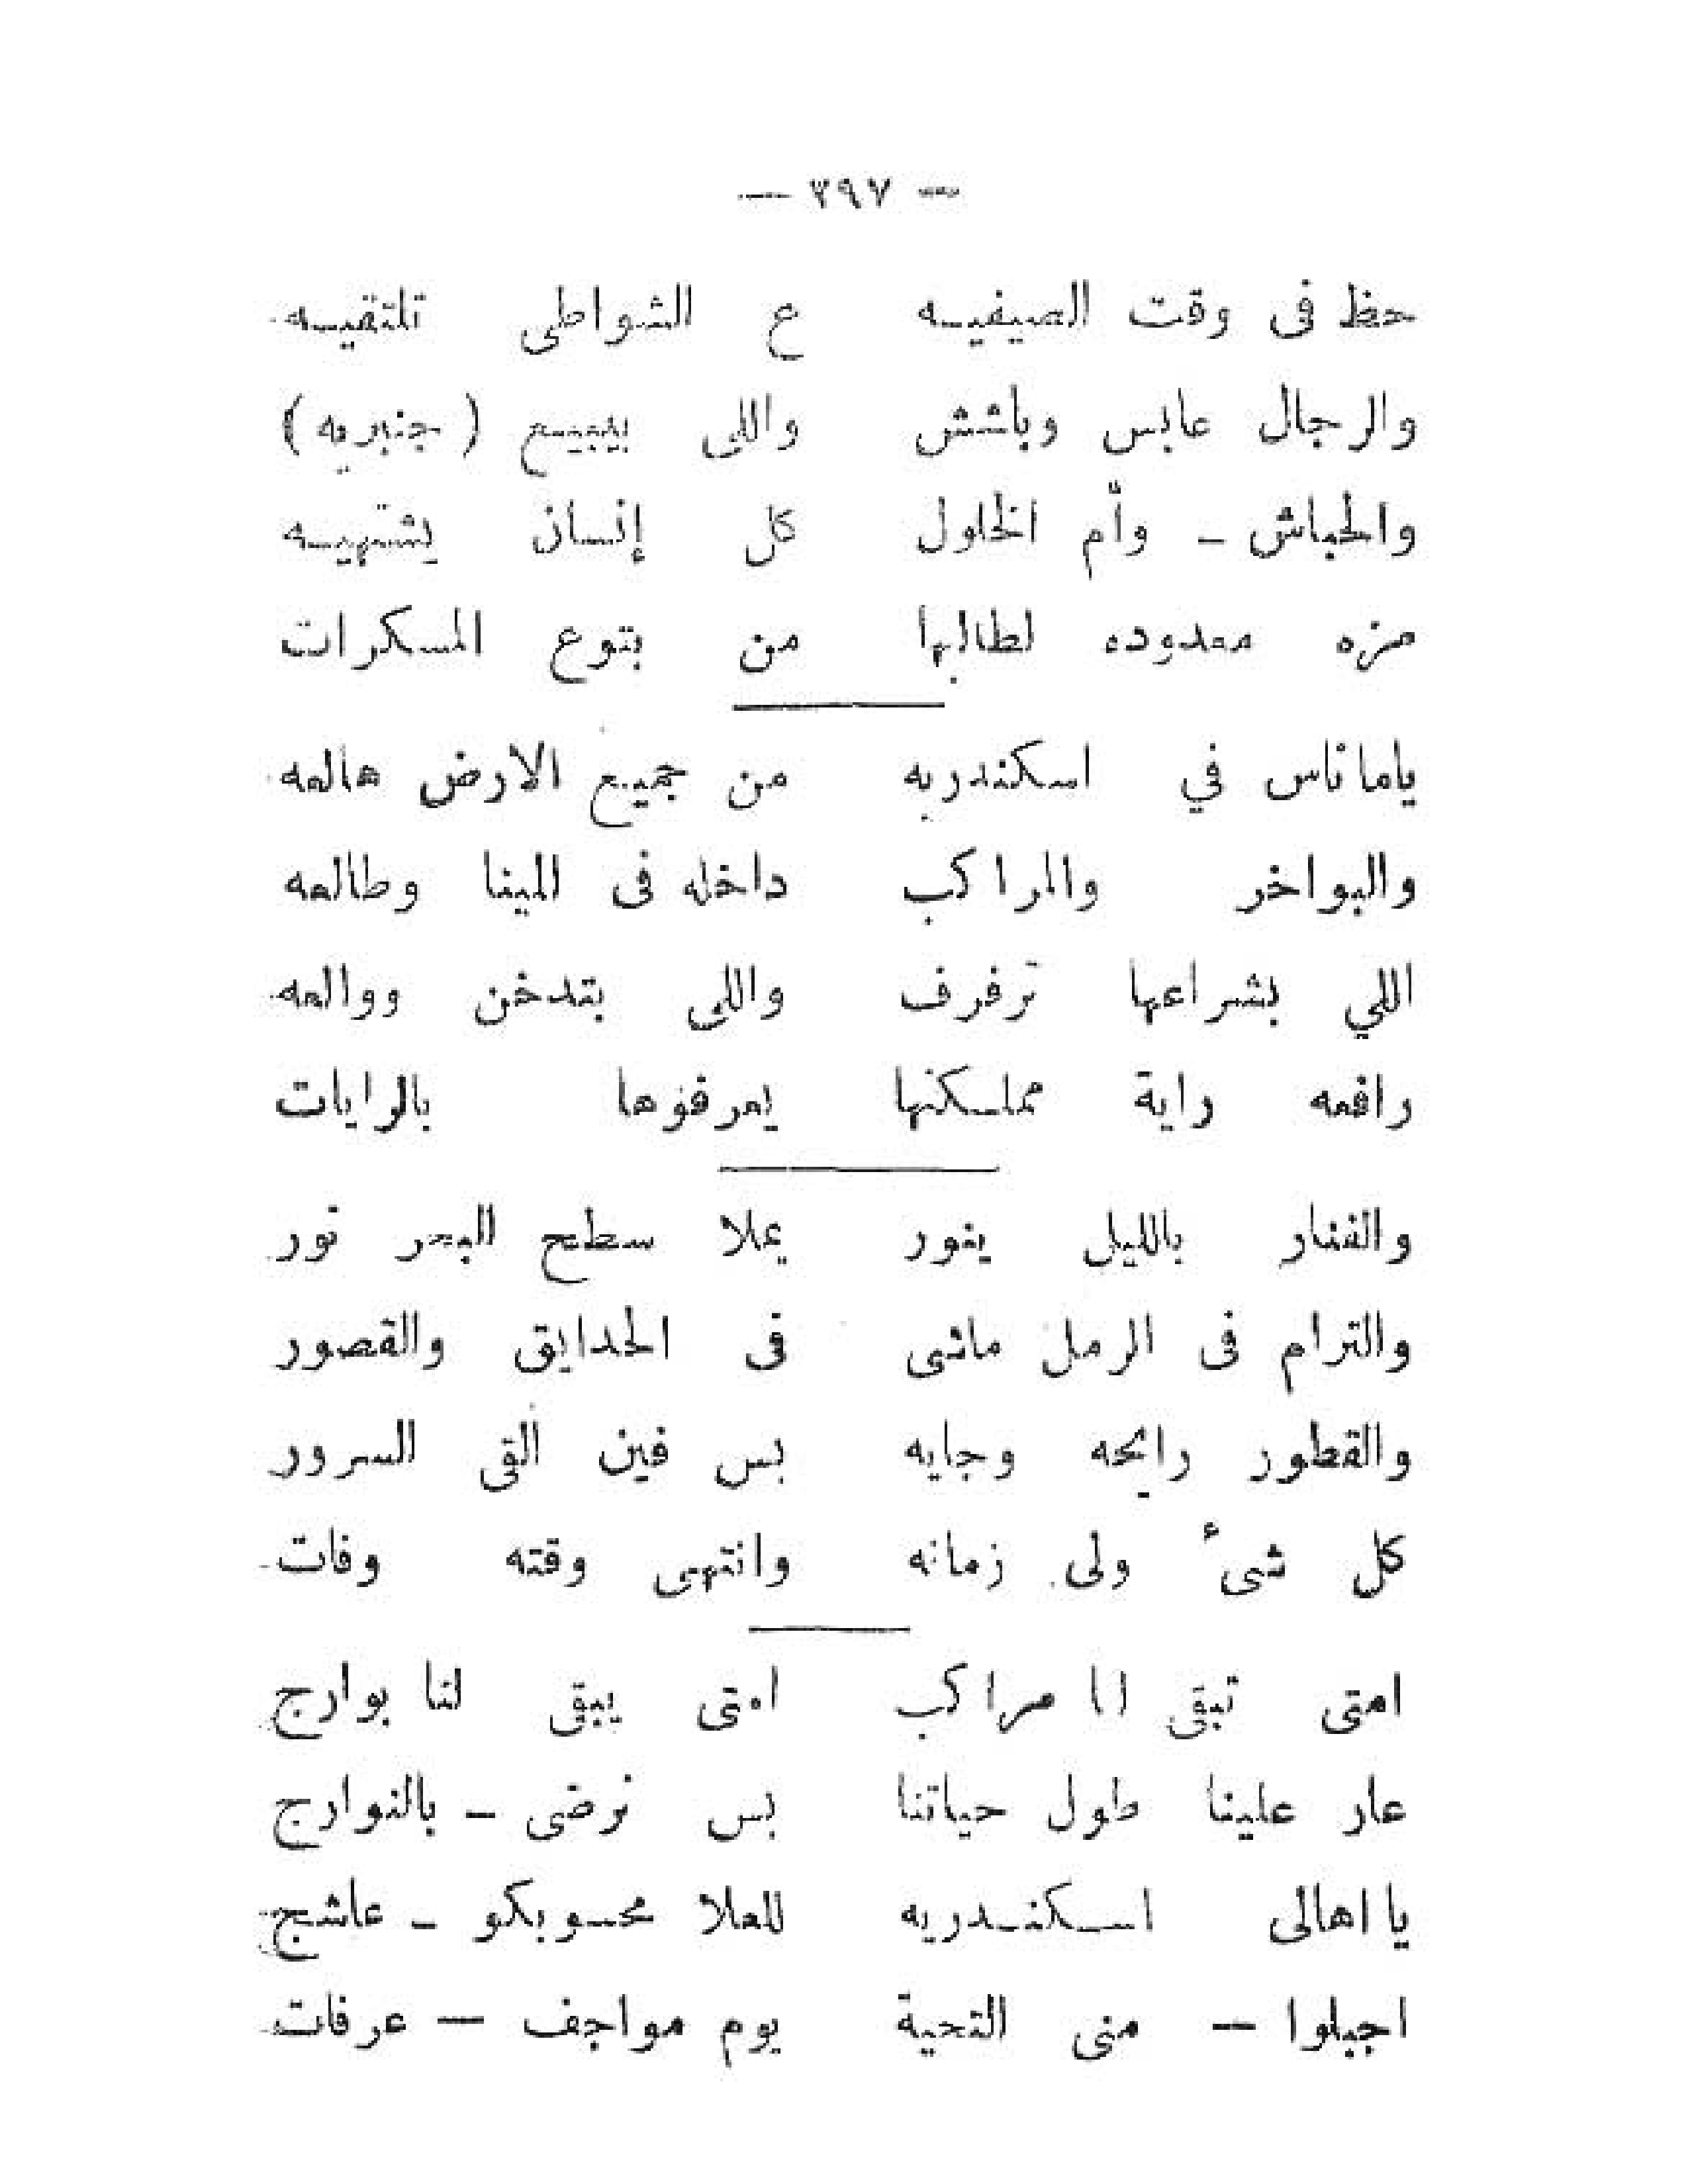 — ٣٩٧ —
حظ فى وقت الصيفيه ع الشواطى تلتقيه
والرجال عابس وباشش واللى بيبيع (جنبريه)
والحباش — وأم الخلول كل إنسان يشتهيه
مزه معدوده لطالبها من بتوع المسكرات
ياما ناس في اسكندريه من جميع الارض هالعه
والبواخر والمراكب داخله فى المينا وطالعه
اللي بشراعها ترفرف واللى بتدخن ووالعه
رافعه راية مملكتها يعرفوها بالرايات
والفنار بالليل ينور يملا سطح البحر نور
والترام فى الرمل ماشى فى الحدايق والقصور
والقطور رايحه وجايه بس فين ألقى السرور
كل شىء ولى زمانه وانتهى وقته وفات
امتى تبقى لنا مراكب امتى يبقى لنا بوارج
عار علينا طول حياتنا بس نرضى — بالنوارج
يا اهالى اسكندريه للعلا محسوبكو — عاشج
اجبلوا — منى التحية يوم مواجف — عرفات